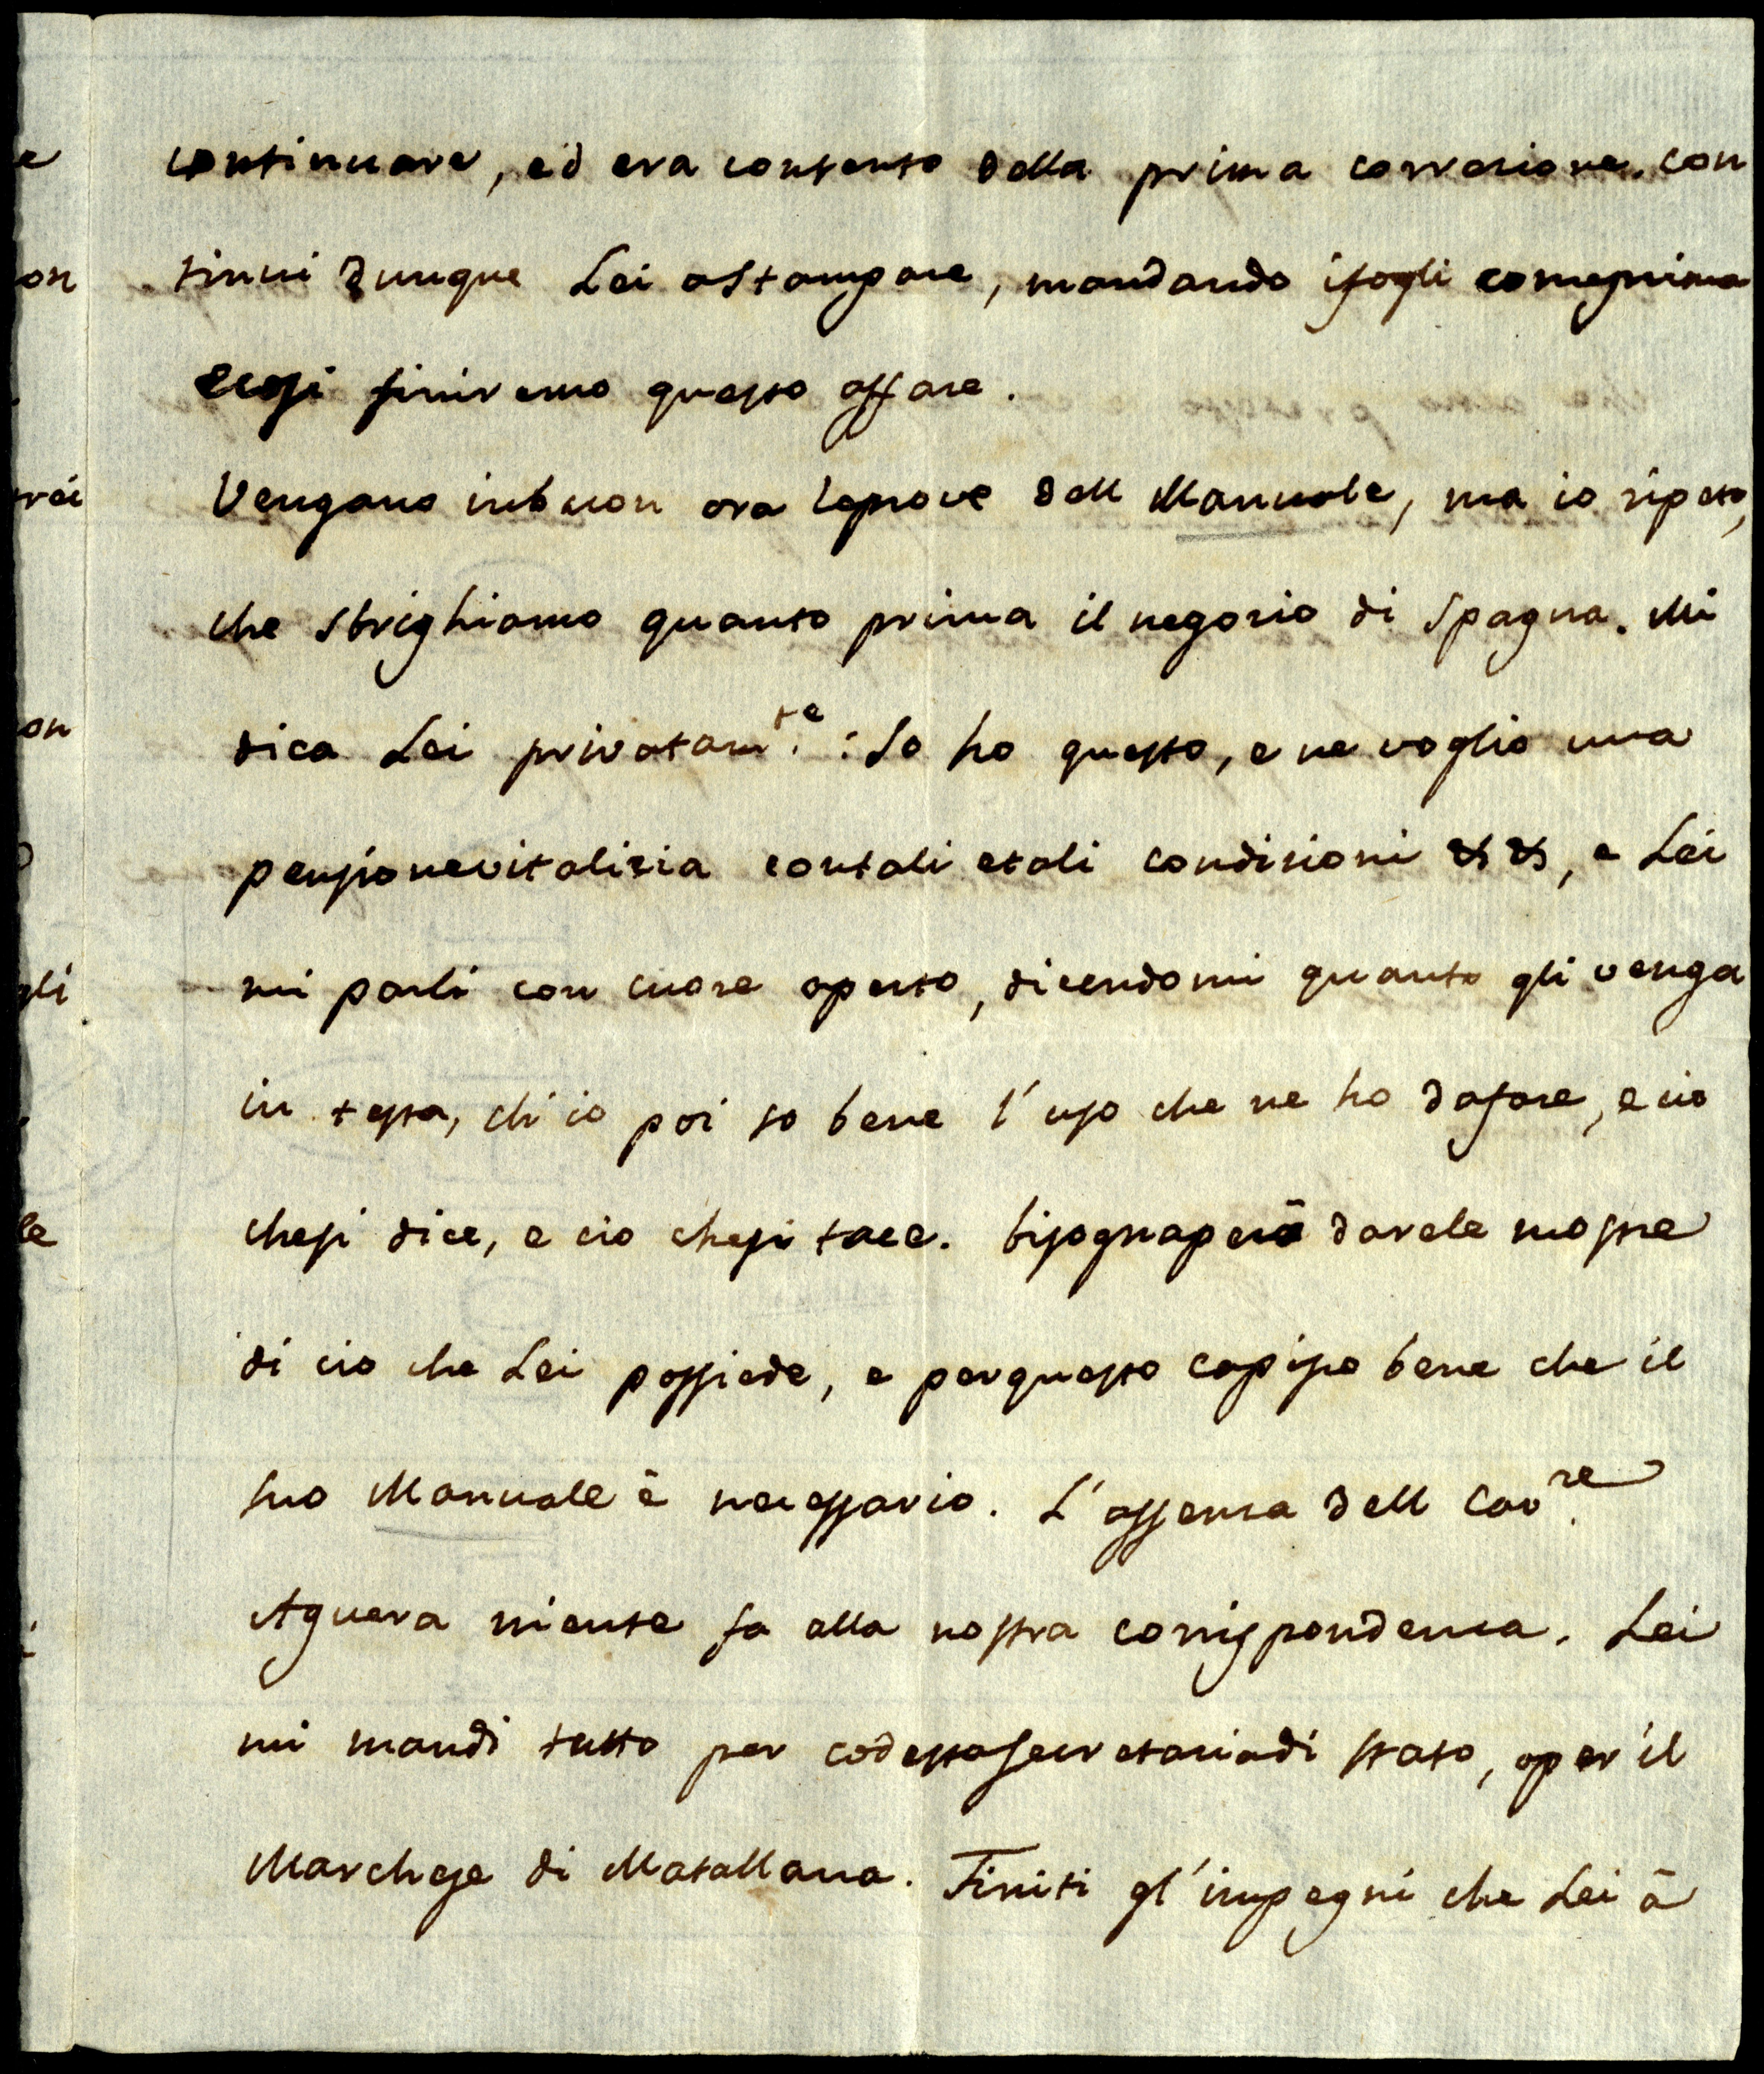 continuare, ed era contento della prima correzione. con
tinui dunque Lei a stampare, mandando i fogli come prima
e cosi finiremo questo affare.
Vengano in buon ora le prove dell Manuale, ma io ripeto,
che sbrighiamo quanto prima il negozio di Spagna. Mi
dica Lei privatam.te : Io ho questo, e ne voglio una
pensione vitalizia con tali e tali condizioni && , e Lei
mi parli con cuore aperto, dicendomi quanto gli venga
in testa, ch'io poi so bene l'uso che ne ho da fare, e cio
che si dice, e cio che si tace. bisogna però darele mostre
di cio che Lei possiede, e per questo capisco bene che il
suo Manuale è necessario. L'assenza dell Cav.re
Aguera niente fa alla nostra corrispondenza. Lei
mi mandi tutto per codesta secretaria di stato, o per il
Marchese di Matallana. Finiti gl'impegni che Lei à